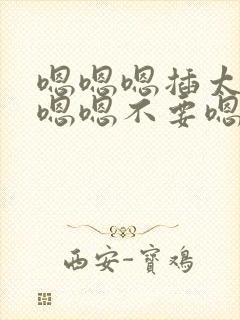 嗯嗯嗯插太
嗯嗯不要嗯
西安-寶鸡